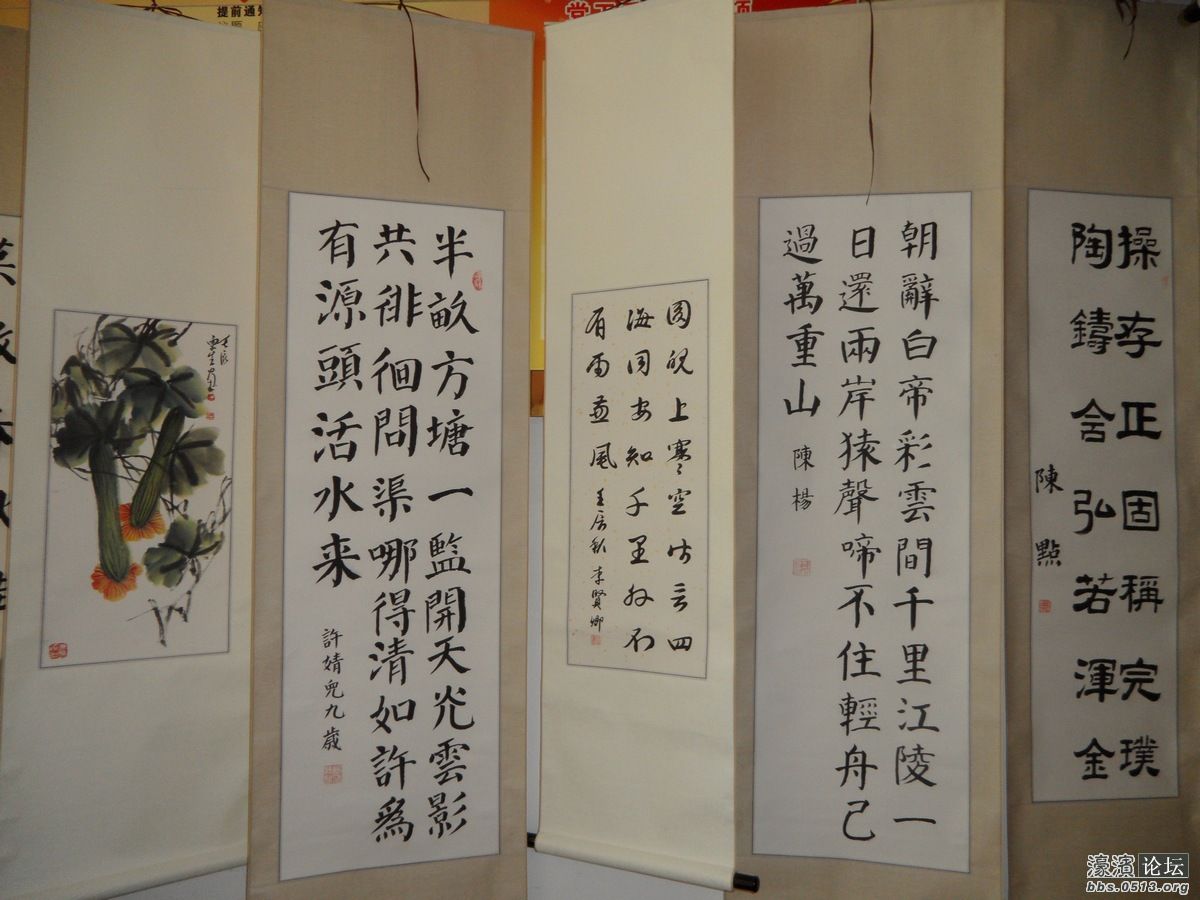 提前通知
操存正固稱完璞
陶鑄含弘若渾金
陳 黠
朝辭白帝彩雲間千里江陵一
日還兩岸猿聲啼不住輕舟已
過萬重山 陳楊
圓皎上寒空皆言四
海同安知千里外不
有雨兼風 壬辰秋 李賢卿
半畝方塘一監開天光雲影
共徘徊問渠哪得清如許為
有源頭活水来
許婧兒九歲
壬辰
濠濱论坛
bbs.0513.org